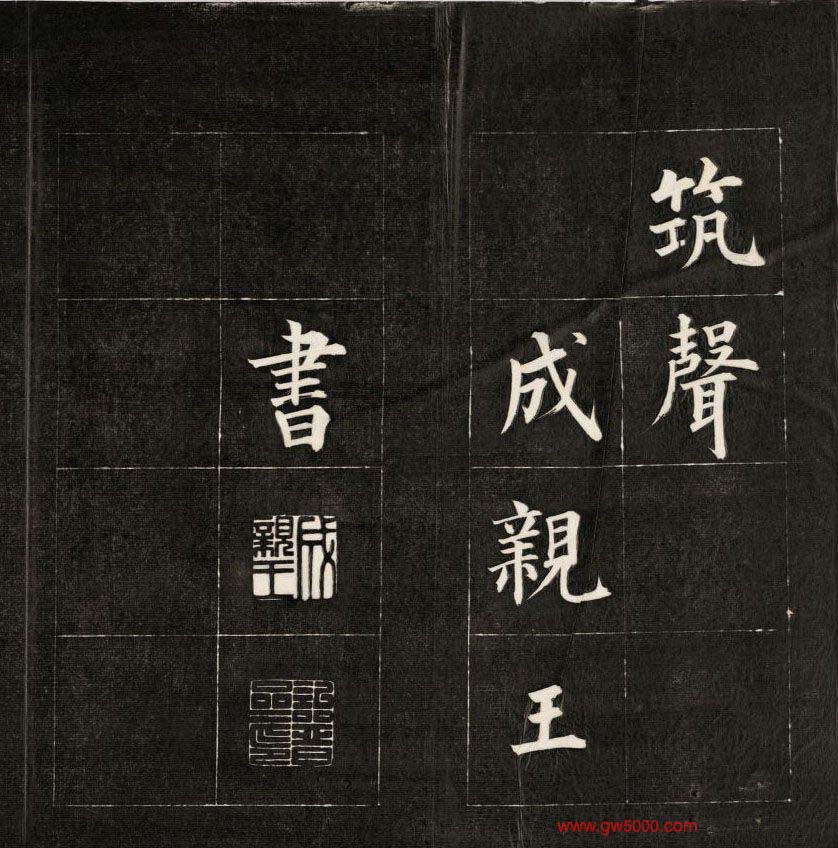 筑聲
成親王
書
成親王
www.gw5000.com